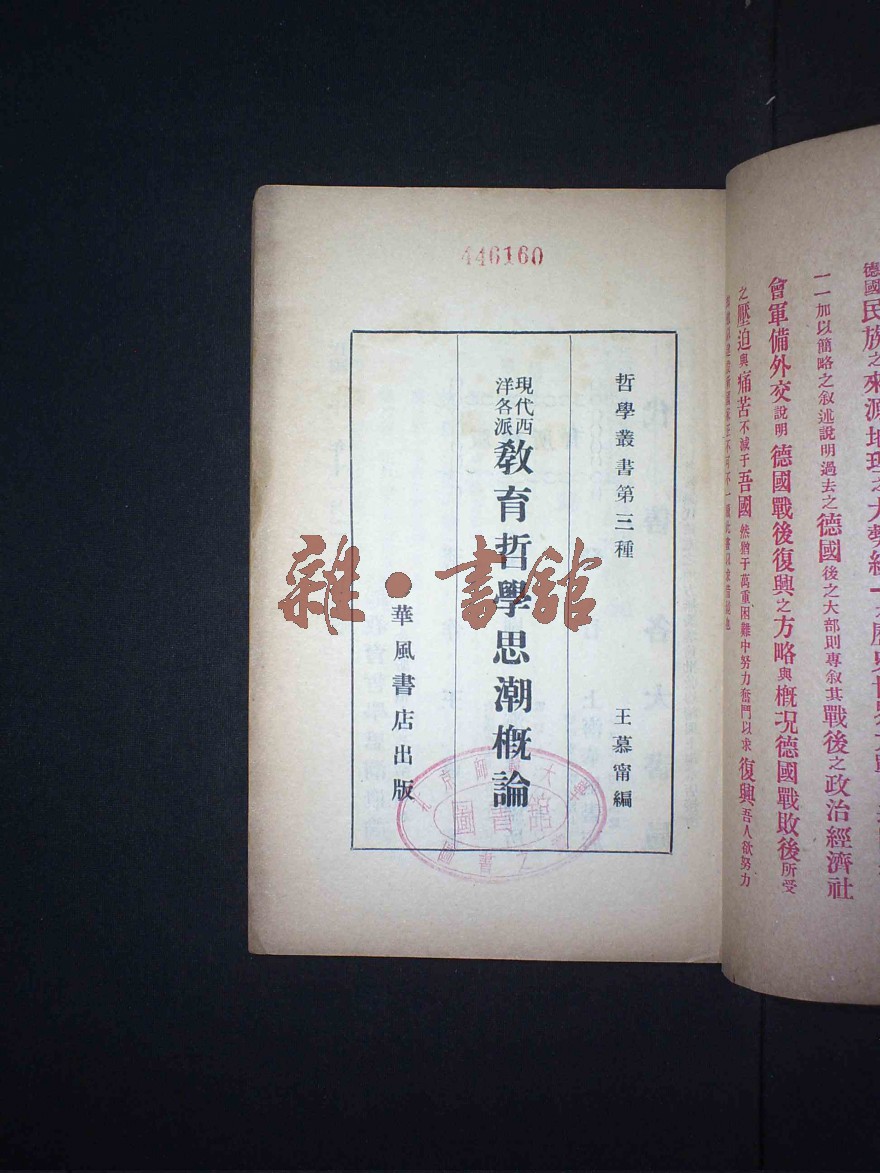 446160
哲學叢書第三種
王慕甯編
現代西
洋各派
教育哲學思潮概論
華風書店出版
雜·書館
圖書館
德國民族之來源地理之大勢統一之歷史
一一加以簡略之叙述說明過去之德國後之大部則專叙其戰後之政治經濟社
會軍備外交說明德國戰後復興之方略與概况德國戰敗後所受
之壓迫與痛苦不減于吾國然猶于萬重困難中努力奮鬥以求復興吾人欲努力